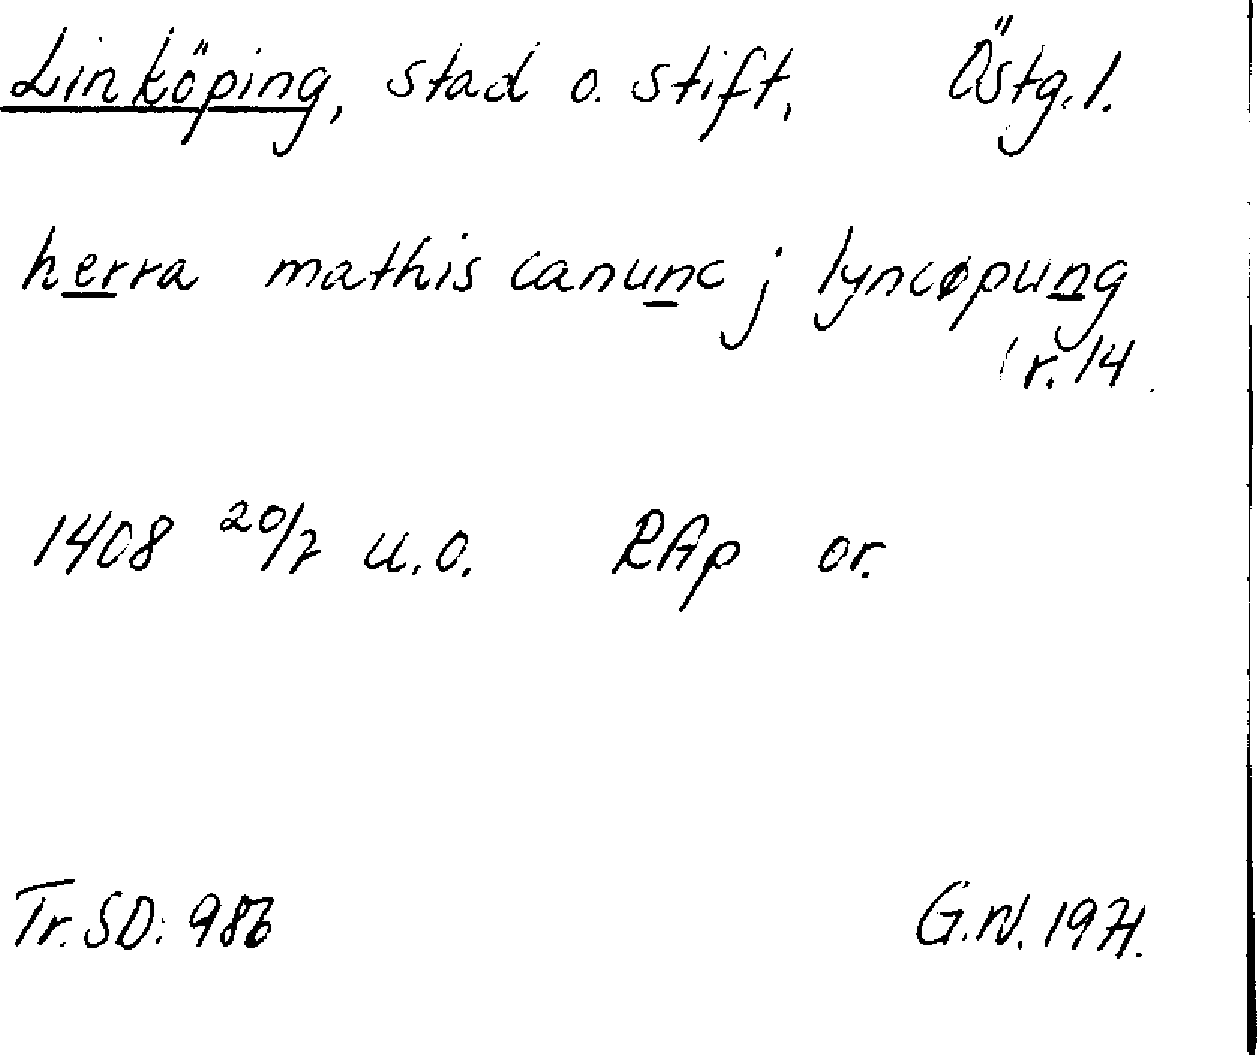 Linköping, stad o. stift, Östg.l.
herra mathis canunc j lyncøpung
r. 14.
1408 20/7 u.o. RAp or.
Tr. SD: 986
G.N. 1971.